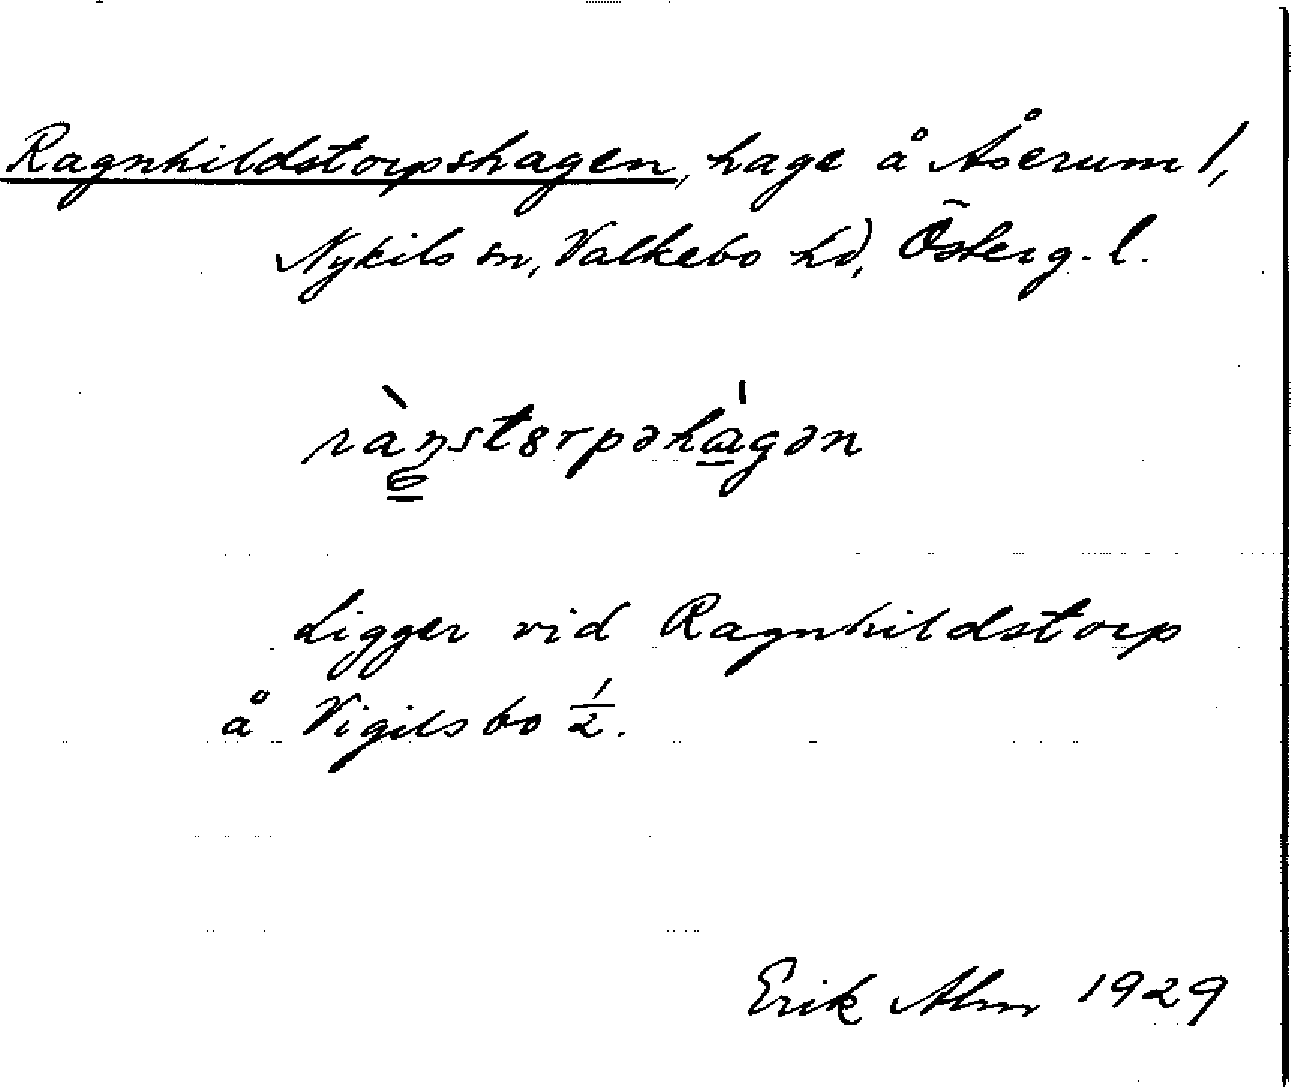 Ragnhildstorpshagen, hage å Åserum 1,
Nykils sn, Valkebo hd, Österg. l.
Ligger vid Ragnhildstorp
å Vigilsbo 1/2.
Erik Alm 1929